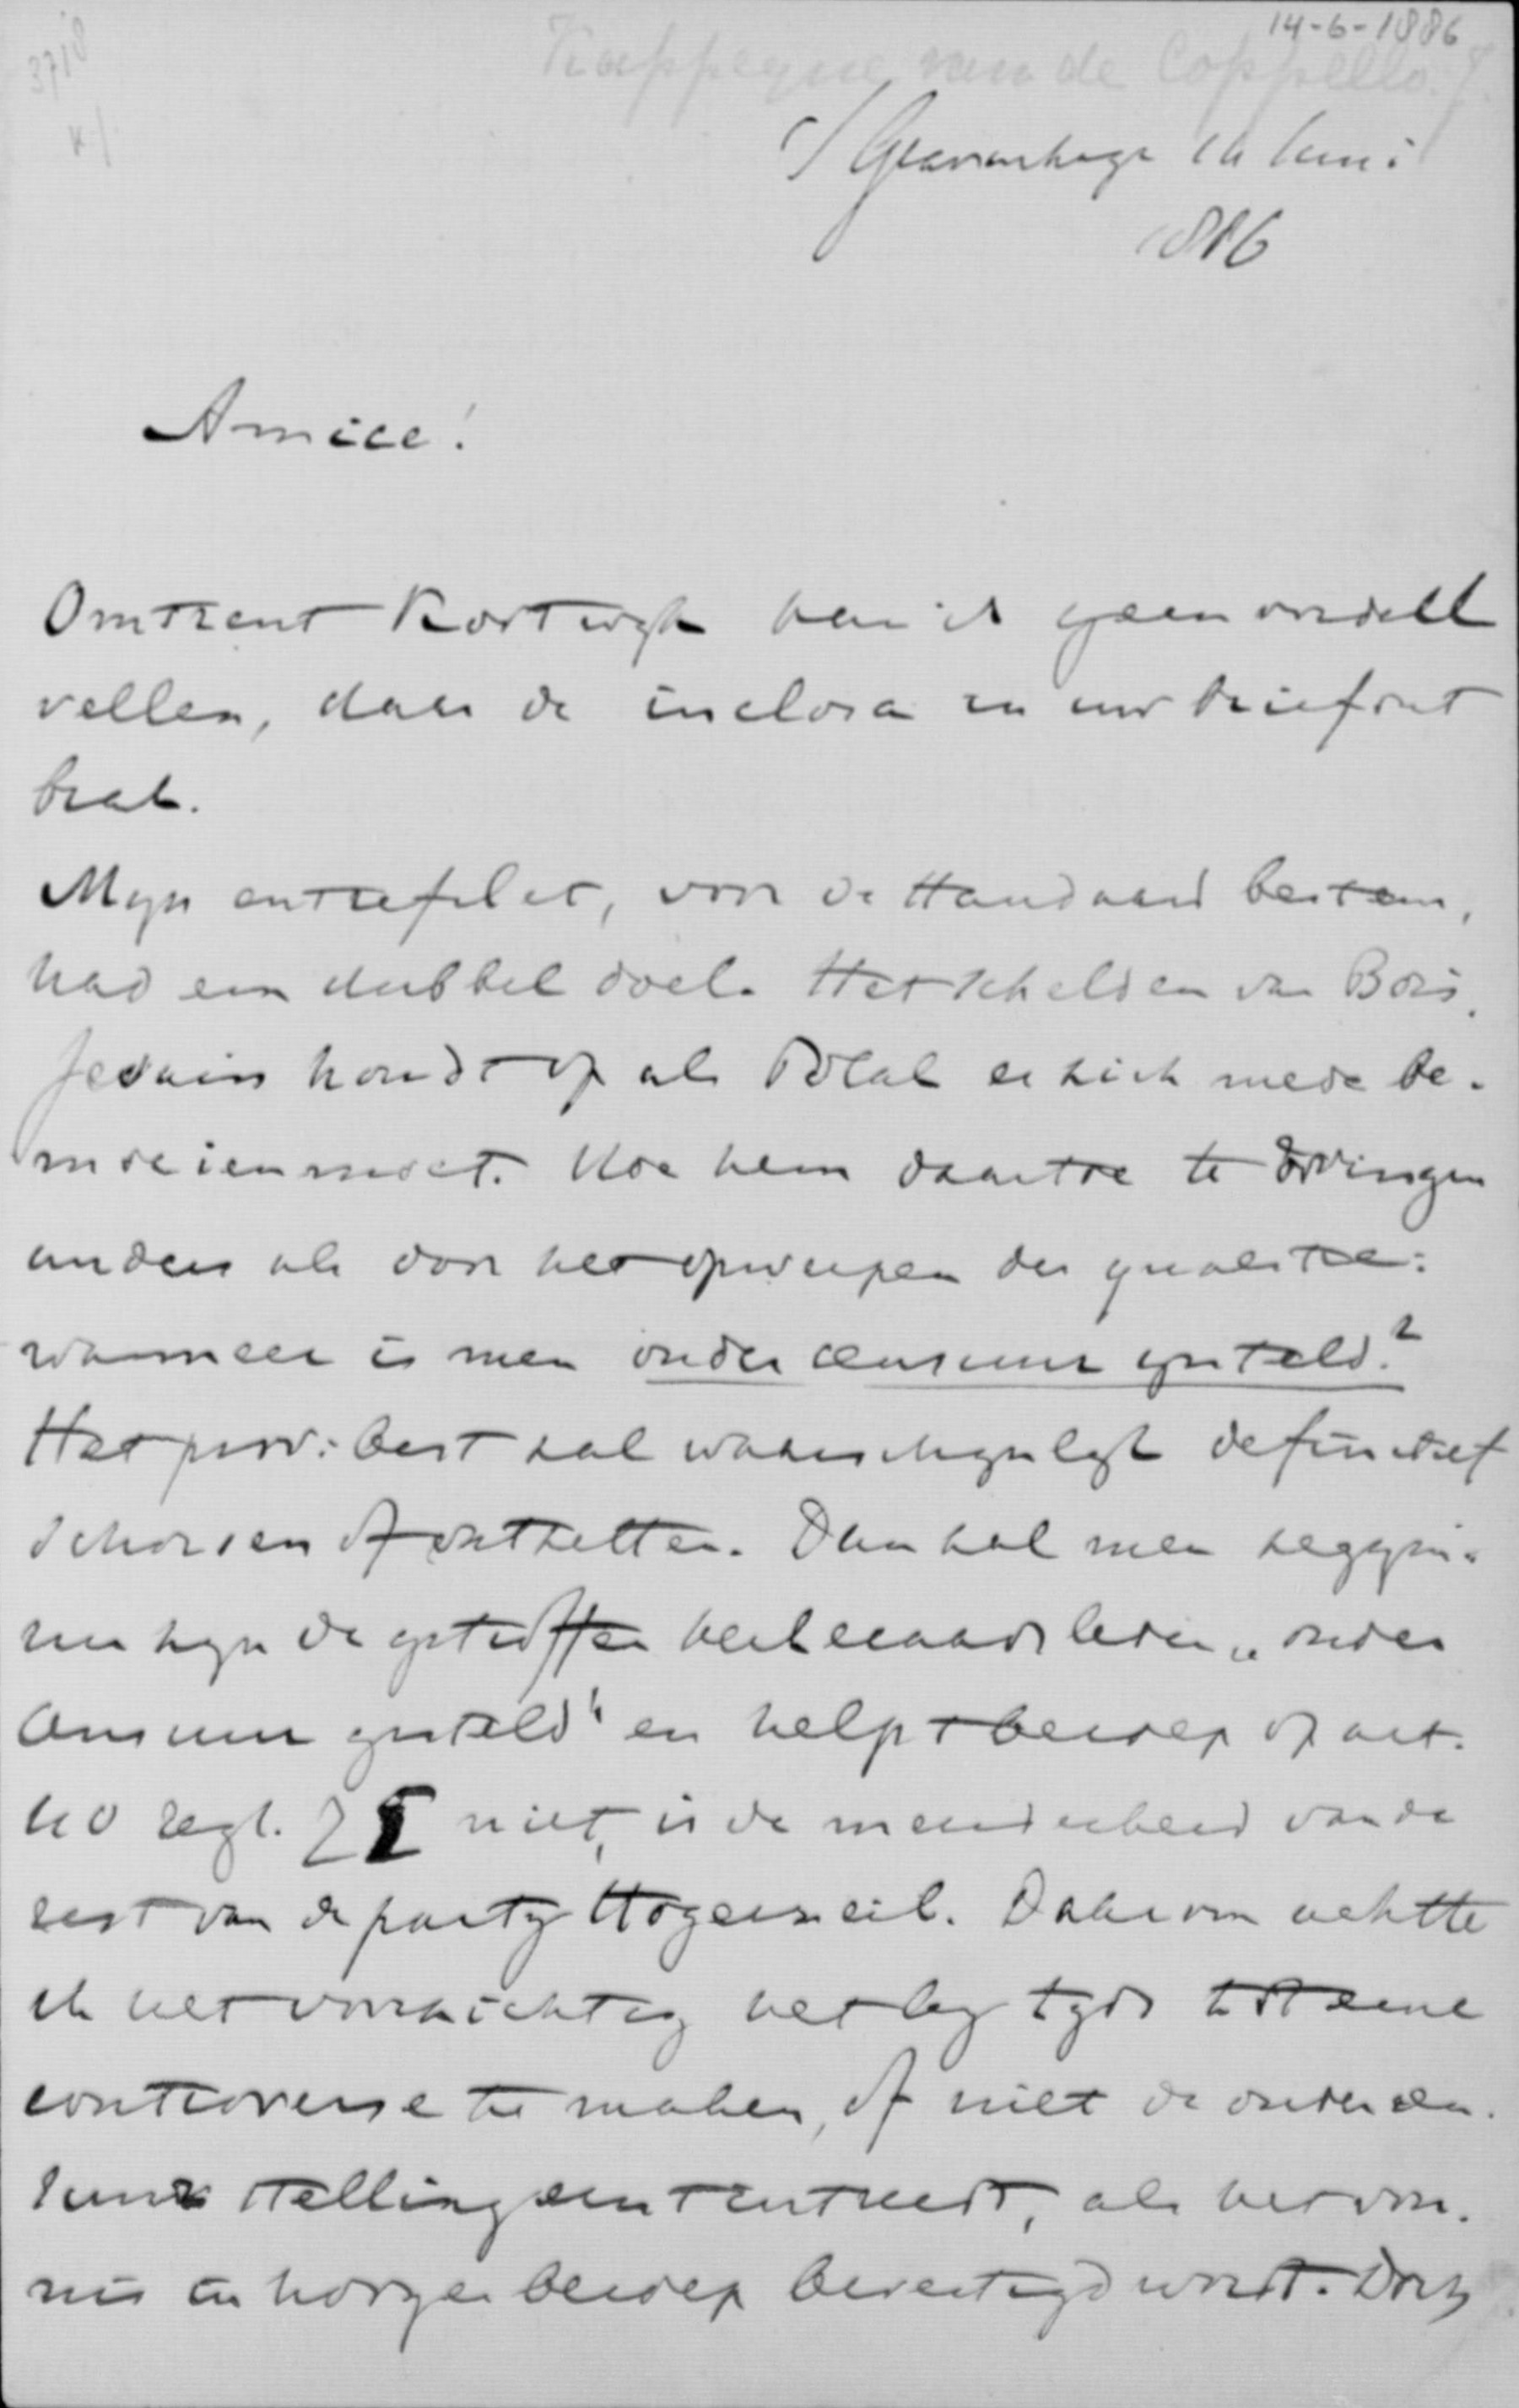 14-6-1886
3718
Kappeyne van de Coppello. J.
K/
s/Gravenhage 14 Juni
1886
Amice!
Omtrent Kortwijk kan ik geen oordeel
vellen, daar de inclosa in uw brief ont
brak.
Mijn entrefilet, voor de Standaard bestemd,
had een dubbel doel. Het schelden van Bois
Jedain houdt op als Pdlal er zich mede be-
moeien moet. Hoe hem daartoe te dwingen
anders als door het opwerpen der quaestie:
wanneer is men onder censuur gesteld?
Het prov: best zal waarschijnlijk definitief
schorsen of ontzetten. Dan zal men zeggen:
nu zijn de getroffen kerkeraadsleden „onder
censuur gesteld" en helpt beroep op art.
40 regl. niet, is de meerderheid van de
rest van de partij Hogerzeil. Daarom achtte
ik het voorzichtig het bij tijds tot eene
controverse te maken, of niet de onder cen-
suur stelling eerst intreedt, als het von-
nis in hooger beroep bevestigd wordt. Doch